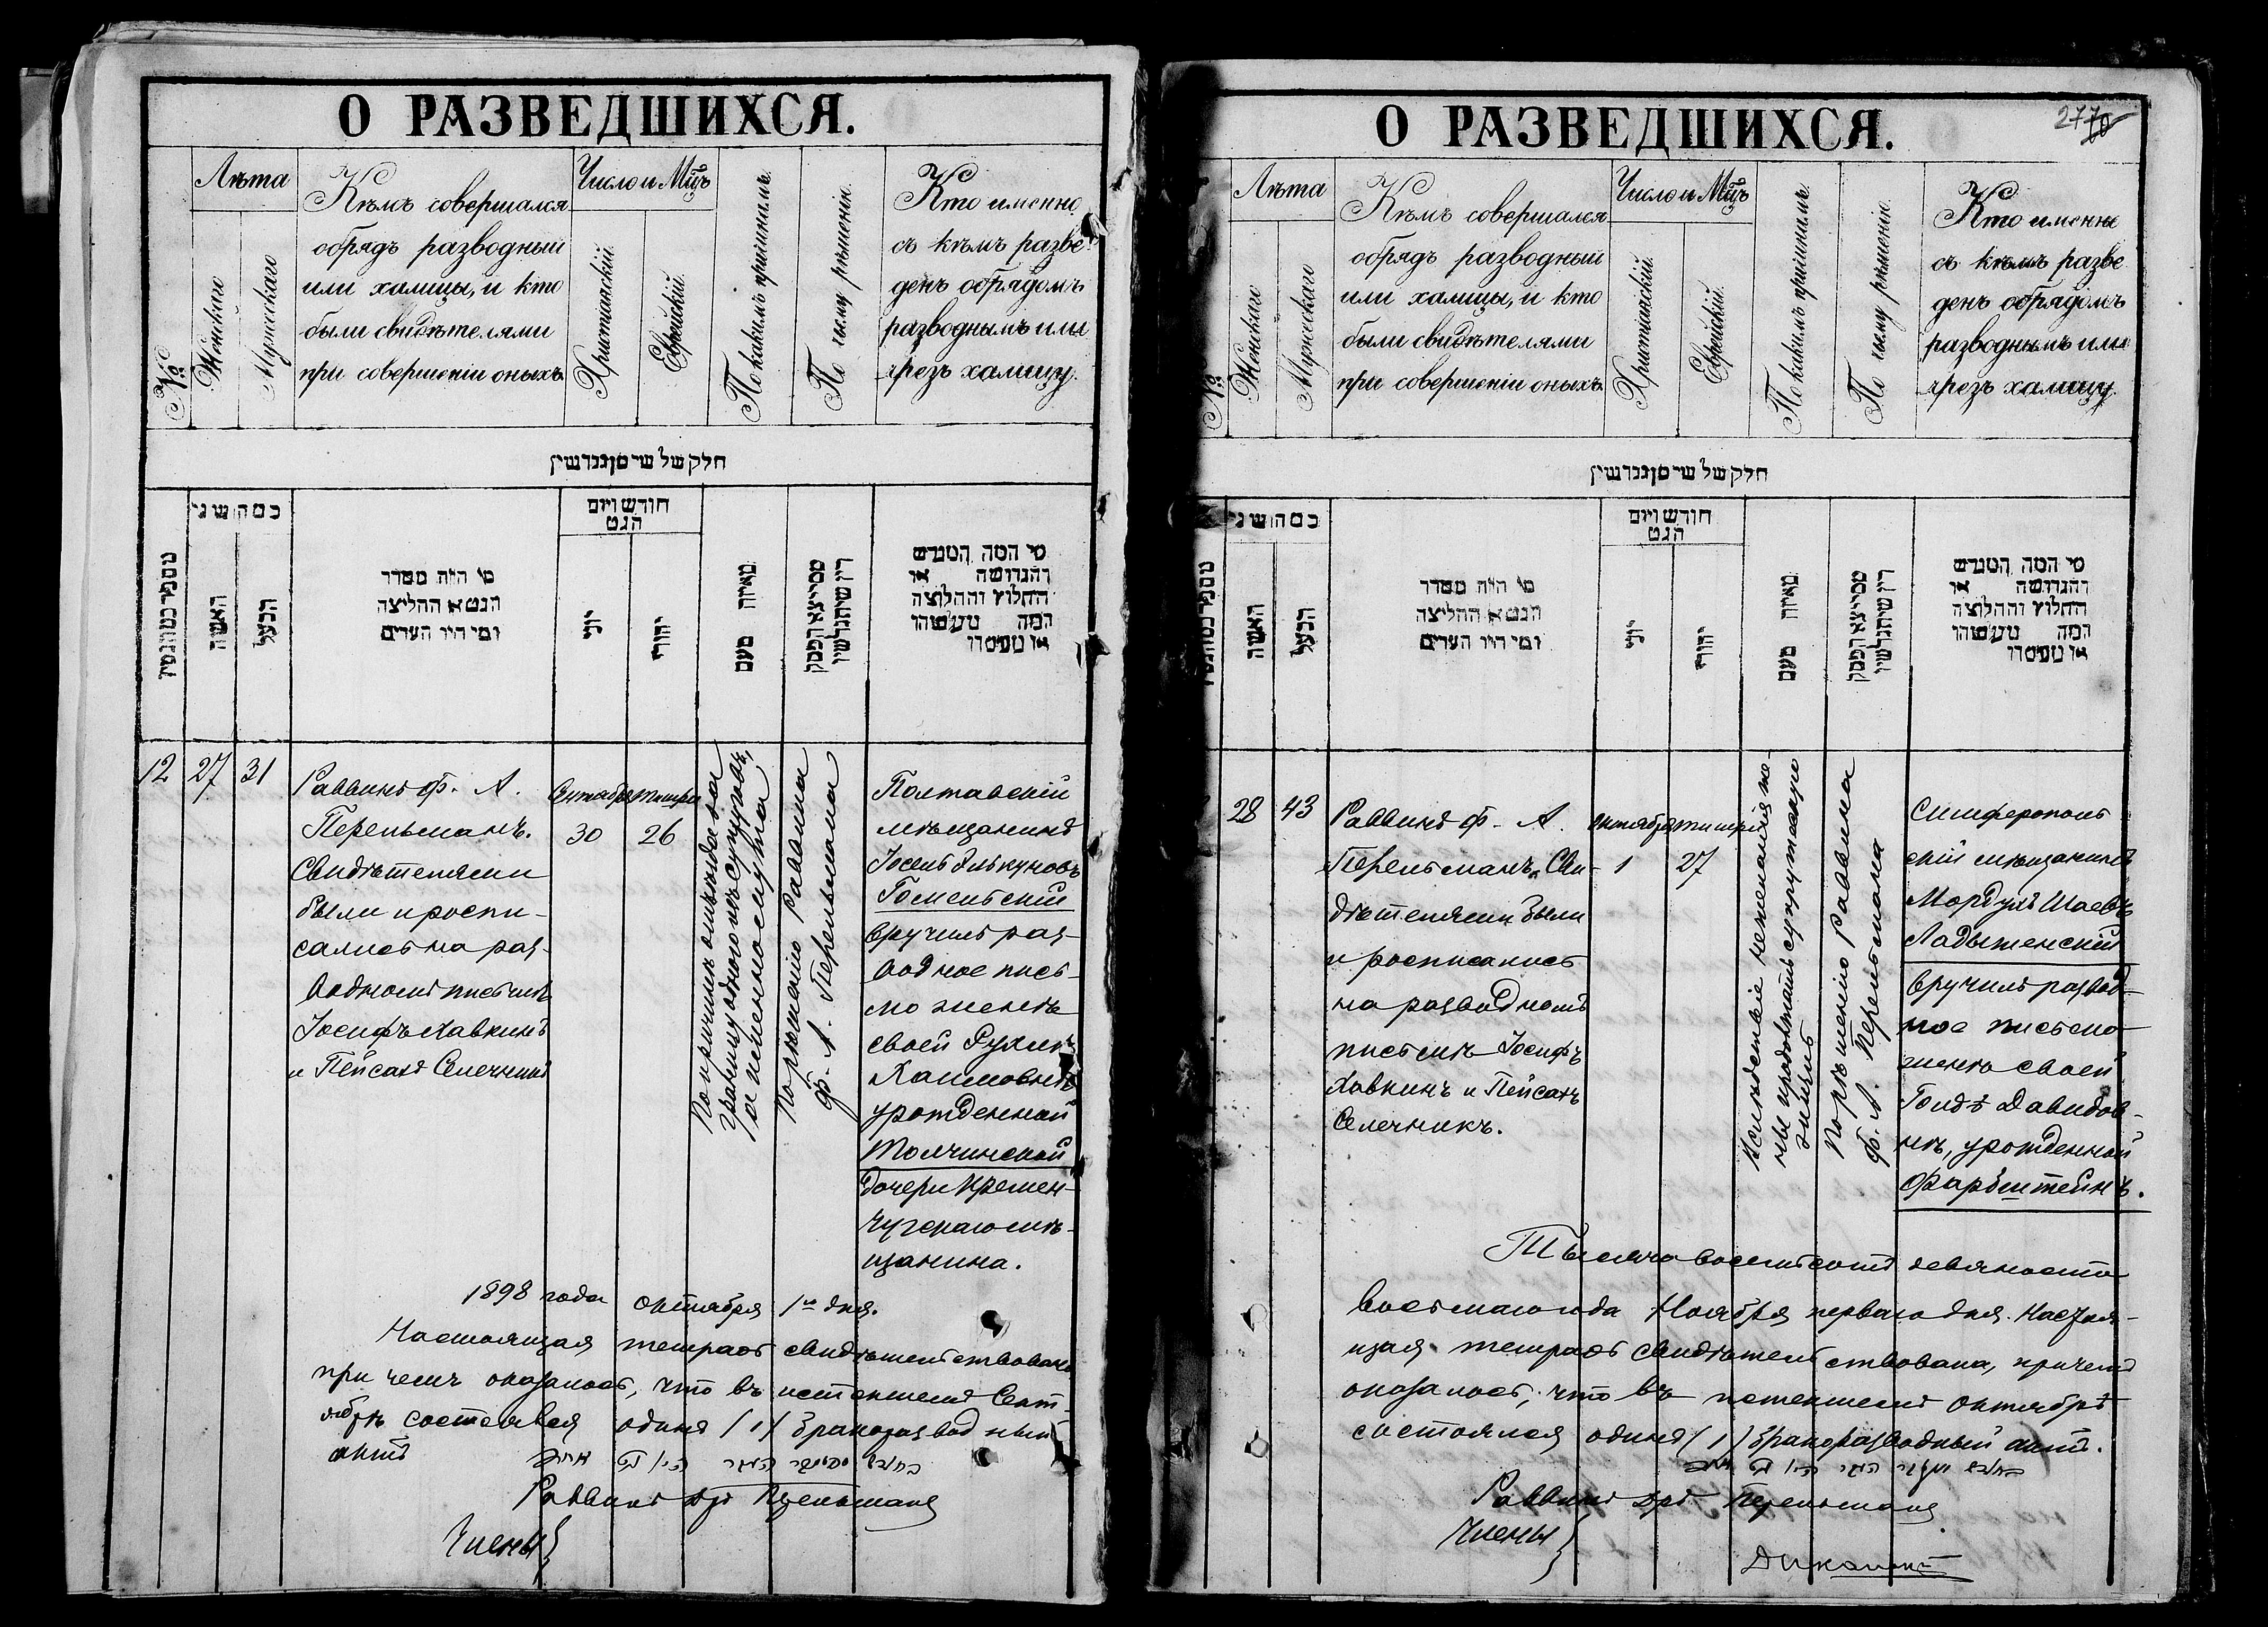 О РАЗВЕДШИХСЯ.
№
Лѣта
Женскаго
Мужескаго
Кѣмъ совершался
обрядъ разводный
или халицы, и кто
были свидѣтелями
при совершеніи оныхъ.
Число и Мцъ
Христіанскій.
Еврейскій.
По какимъ причинамъ.
По чьему рѣшенію.
Кто именно
съ кѣмъ разве
денъ обрядомъ
разводнымъ или
чрезъ халицу.
חלק של שי סן גנדשין
כמה שני
האשה
הבעל
מי היה מסדר
הגט א ההליצה
ומי היו העדים
חודש ויום
הגט
יוני
יהודי
מאיזה טעם
מי המה המגרש
והגרושה או
החלוץ וההלוצה
12
27
31
Раввинъ Ф. А.
Перельманъ.
Свидѣтелями
были и роспи-
сались на раз-
водномъ письмѣ
Іосифъ Хавкинъ
и Пейсахъ Селечникъ
Сентября
30
Тишри
26
По причинѣ отъѣзда за
границу одного изъ супруговъ,
а именно мужа
По рѣшенію Раввина
Ф. А. Перельмана
Полтавскій
мѣщанинъ
Іосель Элькуновъ
Гомельскій
вручилъ раз-
водное пись-
мо женѣ
своей Рухлѣ
Хаимовнѣ
урожденной
Толчинской
дочери Кремен-
чугскаго мѣ-
щанина.
1898 года октября 1го дня.
Настоящая тетрадь свидѣтельствована
при чемъ оказалось, что въ истекшемъ Сент-
ябрѣ состоялся одинъ (1) бракоразводный
актъ
Раввинъ Др Перельманъ
Члены
О РАЗВЕДШИХСЯ.
277
№
Лѣта
Женскаго
Мужескаго
Кѣмъ совершался
обрядъ разводный
или халицы, и кто
были свидѣтелями
при совершеніи оныхъ.
Число и Мцъ
Христіанскій.
Еврейскій.
По какимъ причинамъ.
По чьему рѣшенію.
Кто именно
съ кѣмъ разве
денъ обрядомъ
разводнымъ или
чрезъ халицу.
חלק של שי סן גנדשין
כמה שני
האשה
הבעל
מי היה מסדר
הגט א ההליצה
ומי היו העדים
חודש ויום
הגט
יוני
יהודי
מאיזה טעם
מי המה המגרש
והגרושה או
החלוץ וההלוצה
28
43
Раввинъ Ф. А.
Перельманъ. Сви-
дѣтелями были
и росписались
на разводномъ
письмѣ Іосифъ
Хавкинъ и Пейсахъ
Селечникъ.
Октября
1
Тишри
27
Вслѣдствіе нежеланія же-
ны продолжать супружескую
жизнь
По рѣшенію Раввина
Ф. А. Перельмана
Симферополь
скій мѣщанинъ
Мордухъ Шаевъ
Ладыженскій
вручилъ развод-
ное письмо
женѣ своей
Голдѣ Давидов-
нѣ, урожденной
Фарбштейнъ.
Тысяча восемьсотъ девяносто
восьмаго года Ноября перваго дня. Настоя-
щая тетрадь свидѣтельствована, причемъ
оказалось, что въ истекшемъ Октябрѣ
состоялся одинъ (1) бракоразводный актъ.
Раввинъ Др Перельманъ
Члены